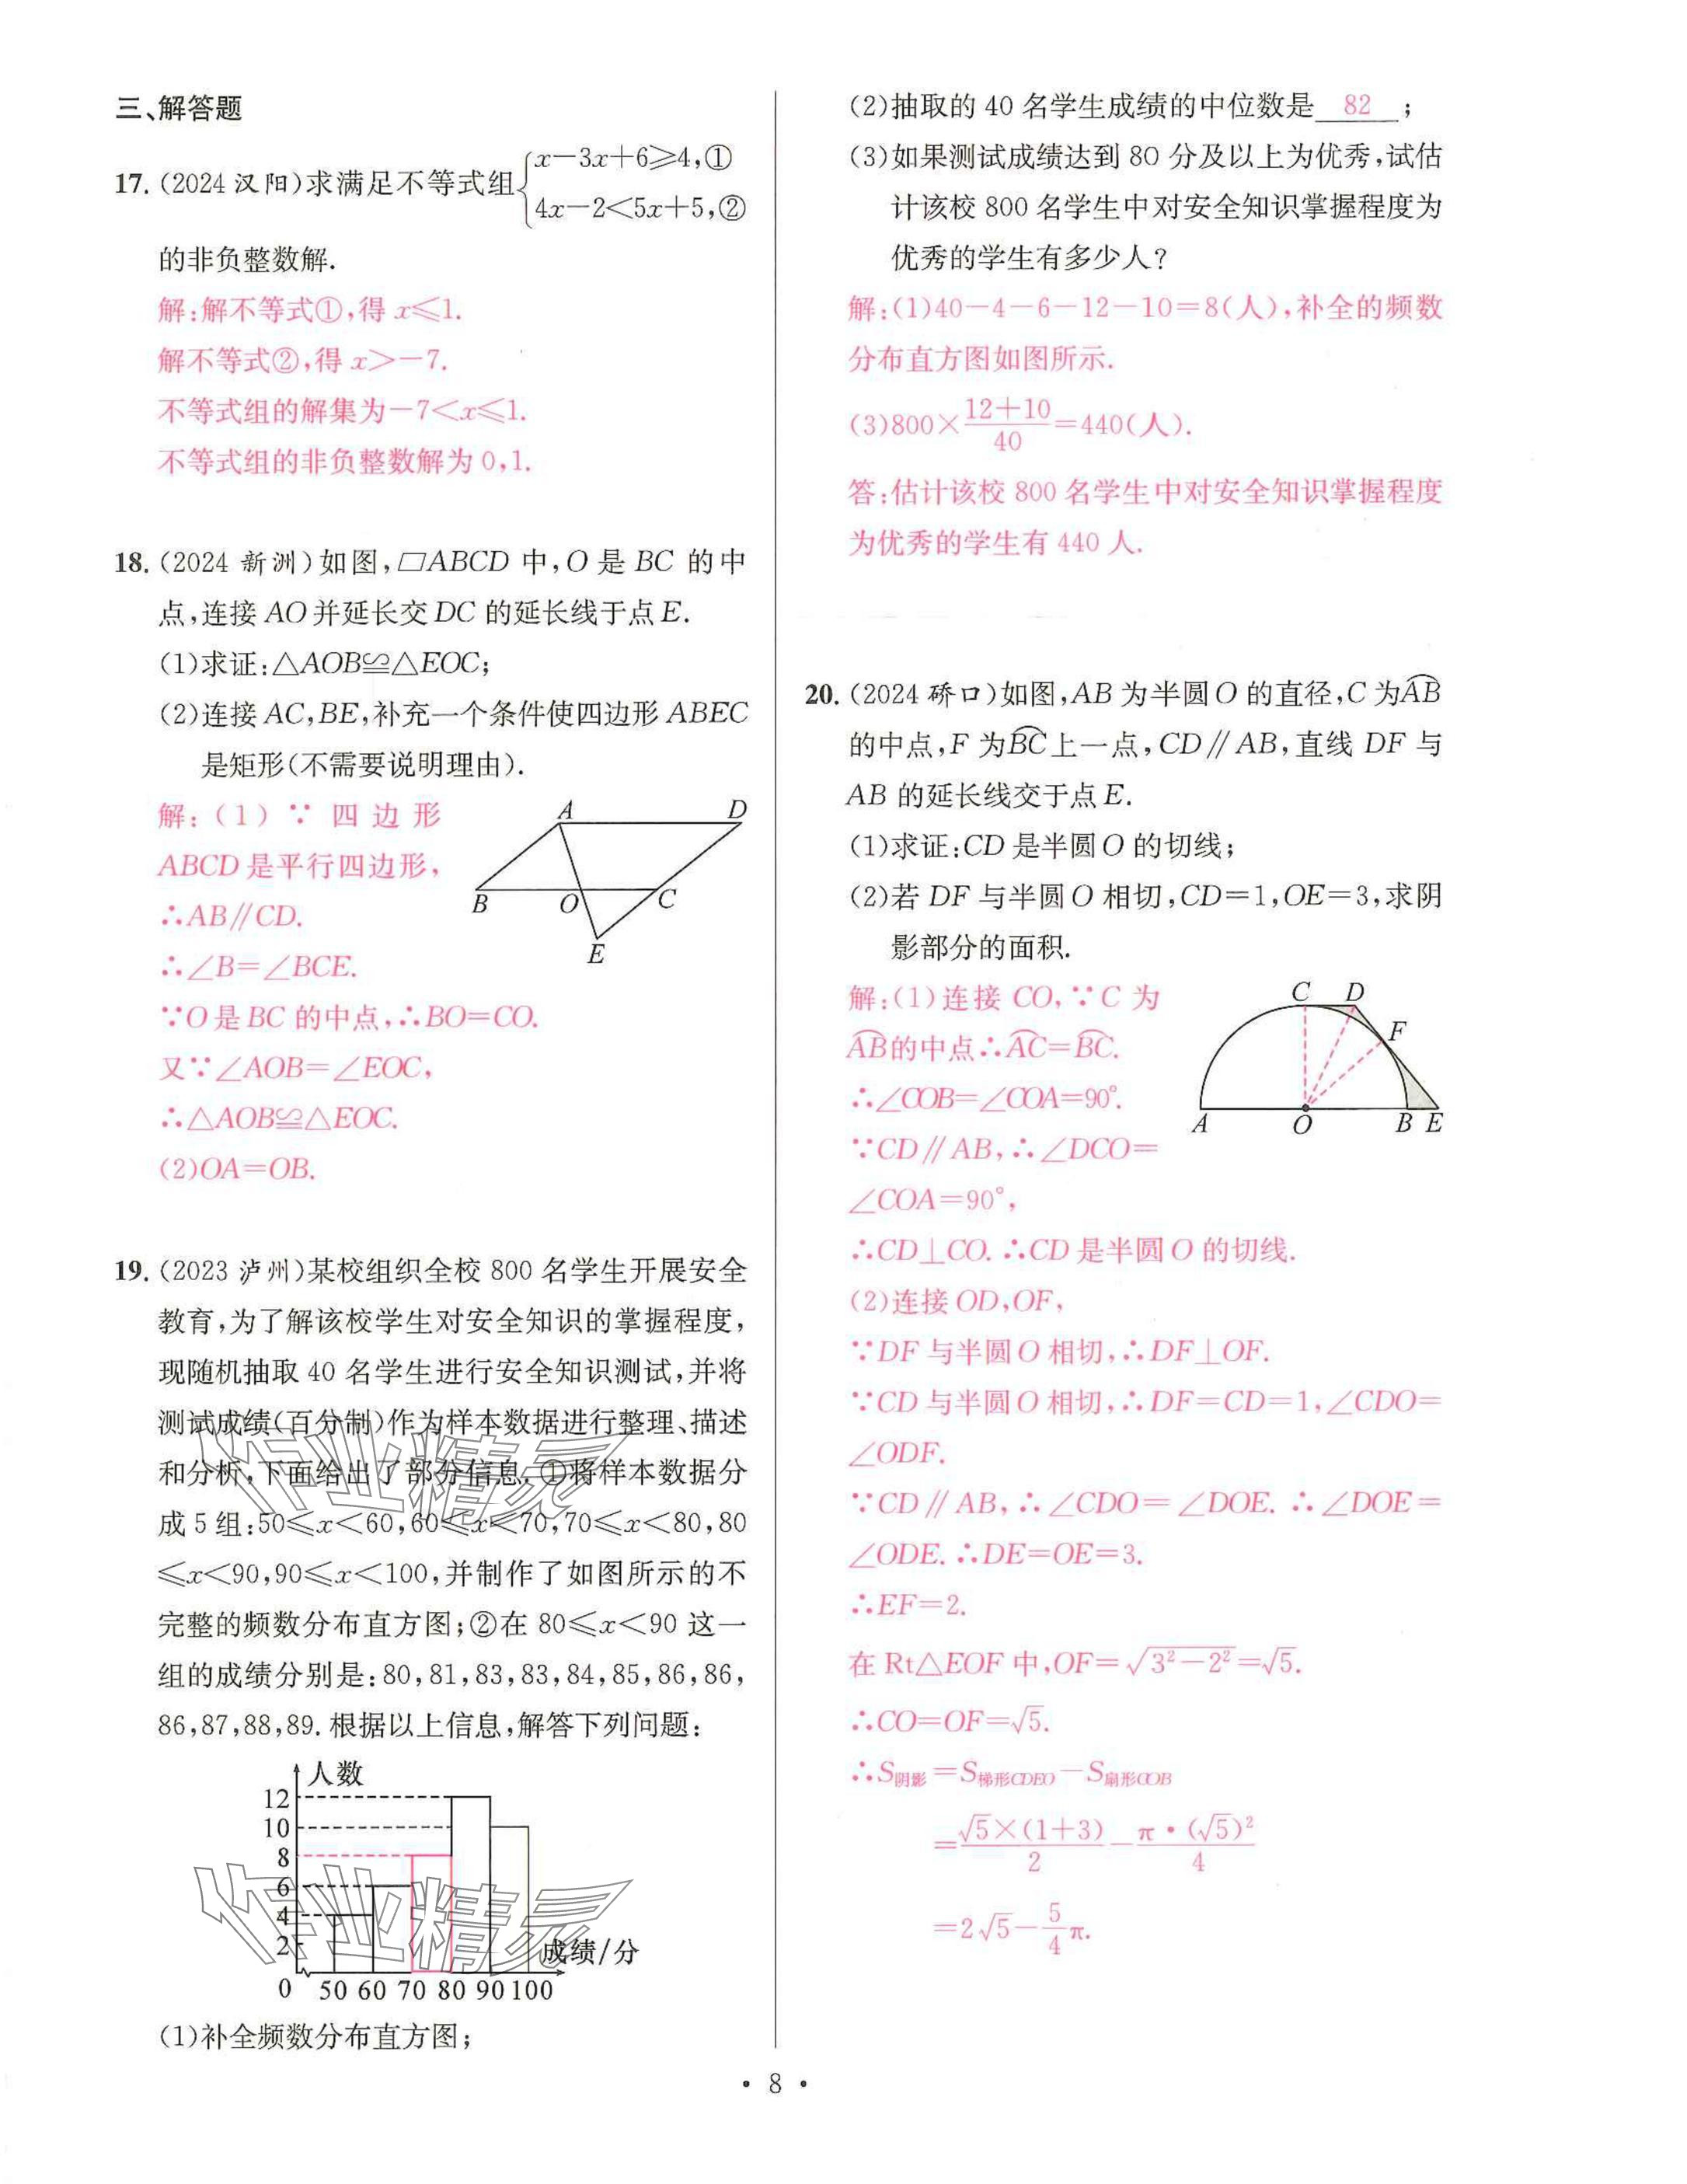 三、解答题
17. (2024 汉阳)求满足不等式组{x－3x＋6≥4,①
4x－2<5x＋5,②
的非负整数解.
解:解不等式①,得 x≤1.
解不等式②,得 x>－7.
不等式组的解集为－7<x≤1.
不等式组的非负整数解为 0,1.
18. (2024 新洲)如图,▱ABCD 中,O 是 BC 的中
点,连接 AO 并延长交 DC 的延长线于点 E.
(1)求证:△AOB≌△EOC;
(2)连接 AC,BE,补充一个条件使四边形 ABEC
是矩形(不需要说明理由).
解:(1)∵四边形
ABCD 是平行四边形,
∴AB∥CD.
∴∠B=∠BCE.
∵O 是 BC 的中点,∴BO=CO.
又∵∠AOB=∠EOC,
∴△AOB≌△EOC.
(2)OA=OB.
A D
B O C
E
19. (2023 泸州)某校组织全校 800 名学生开展安全
教育,为了解该校学生对安全知识的掌握程度,
现随机抽取 40 名学生进行安全知识测试,并将
测试成绩(百分制)作为样本数据进行整理、描述
和分析,下面给出了部分信息.①将样本数据分
成 5 组:50≤x<60,60≤x<70,70≤x<80,80
≤x<90,90≤x<100,并制作了如图所示的不
完整的频数分布直方图;②在 80≤x<90 这一
组的成绩分别是:80,81,83,83,84,85,86,86,
86,87,88,89.根据以上信息,解答下列问题:
人数
12
10
8
6
4
2
0 50 60 70 80 90 100
成绩/分
作业精灵
作业精灵
(1)补全频数分布直方图;
(2)抽取的 40 名学生成绩的中位数是 82 ;
(3)如果测试成绩达到 80 分及以上为优秀,试估
计该校 800 名学生中对安全知识掌握程度为
优秀的学生有多少人?
解:(1)40－4－6－12－10=8(人),补全的频数
分布直方图如图所示.
(3)800×(12+10)/40=440(人).
答:估计该校 800 名学生中对安全知识掌握程度
为优秀的学生有 440 人.
20. (2024 硚口)如图,AB 为半圆 O 的直径,C 为⌒AB
的中点,F 为⌒BC上一点,CD∥AB,直线 DF 与
AB 的延长线交于点 E.
(1)求证:CD 是半圆 O 的切线;
(2)若 DF 与半圆 O 相切,CD=1,OE=3,求阴
影部分的面积.
解:(1)连接 CO,∵C 为
⌒AB的中点∴⌒AC=⌒BC.
∴∠COB=∠COA=90°.
∵CD∥AB,∴∠DCO=
∠COA=90°,
∴CD⊥CO.∴CD 是半圆 O 的切线.
C D
F
A O B E
(2)连接 OD,OF,
∵DF 与半圆 O 相切,∴DF⊥OF.
∵CD 与半圆 O 相切,∴DF=CD=1,∠CDO=
∠ODF.
∵CD∥AB,∴∠CDO=∠DOE.∴∠DOE=
∠ODE.∴DE=OE=3.
∴EF=2.
在 Rt△EOF 中,OF=√(3²－2²)=√5.
∴CO=OF=√5.
∴S阴影=S梯形CDEO－S扇形COB
=√5×(1+3)/2－π·(√5)²/4
=2√5－5/4π.
· 8 ·